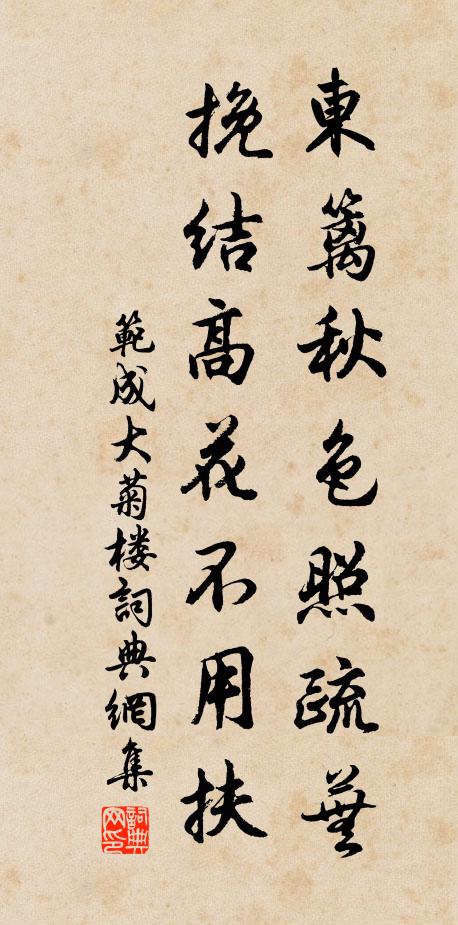 東籬秋色照疏蕪
挽結高花不用扶
範成大菊楼詞典網集
詞典网印